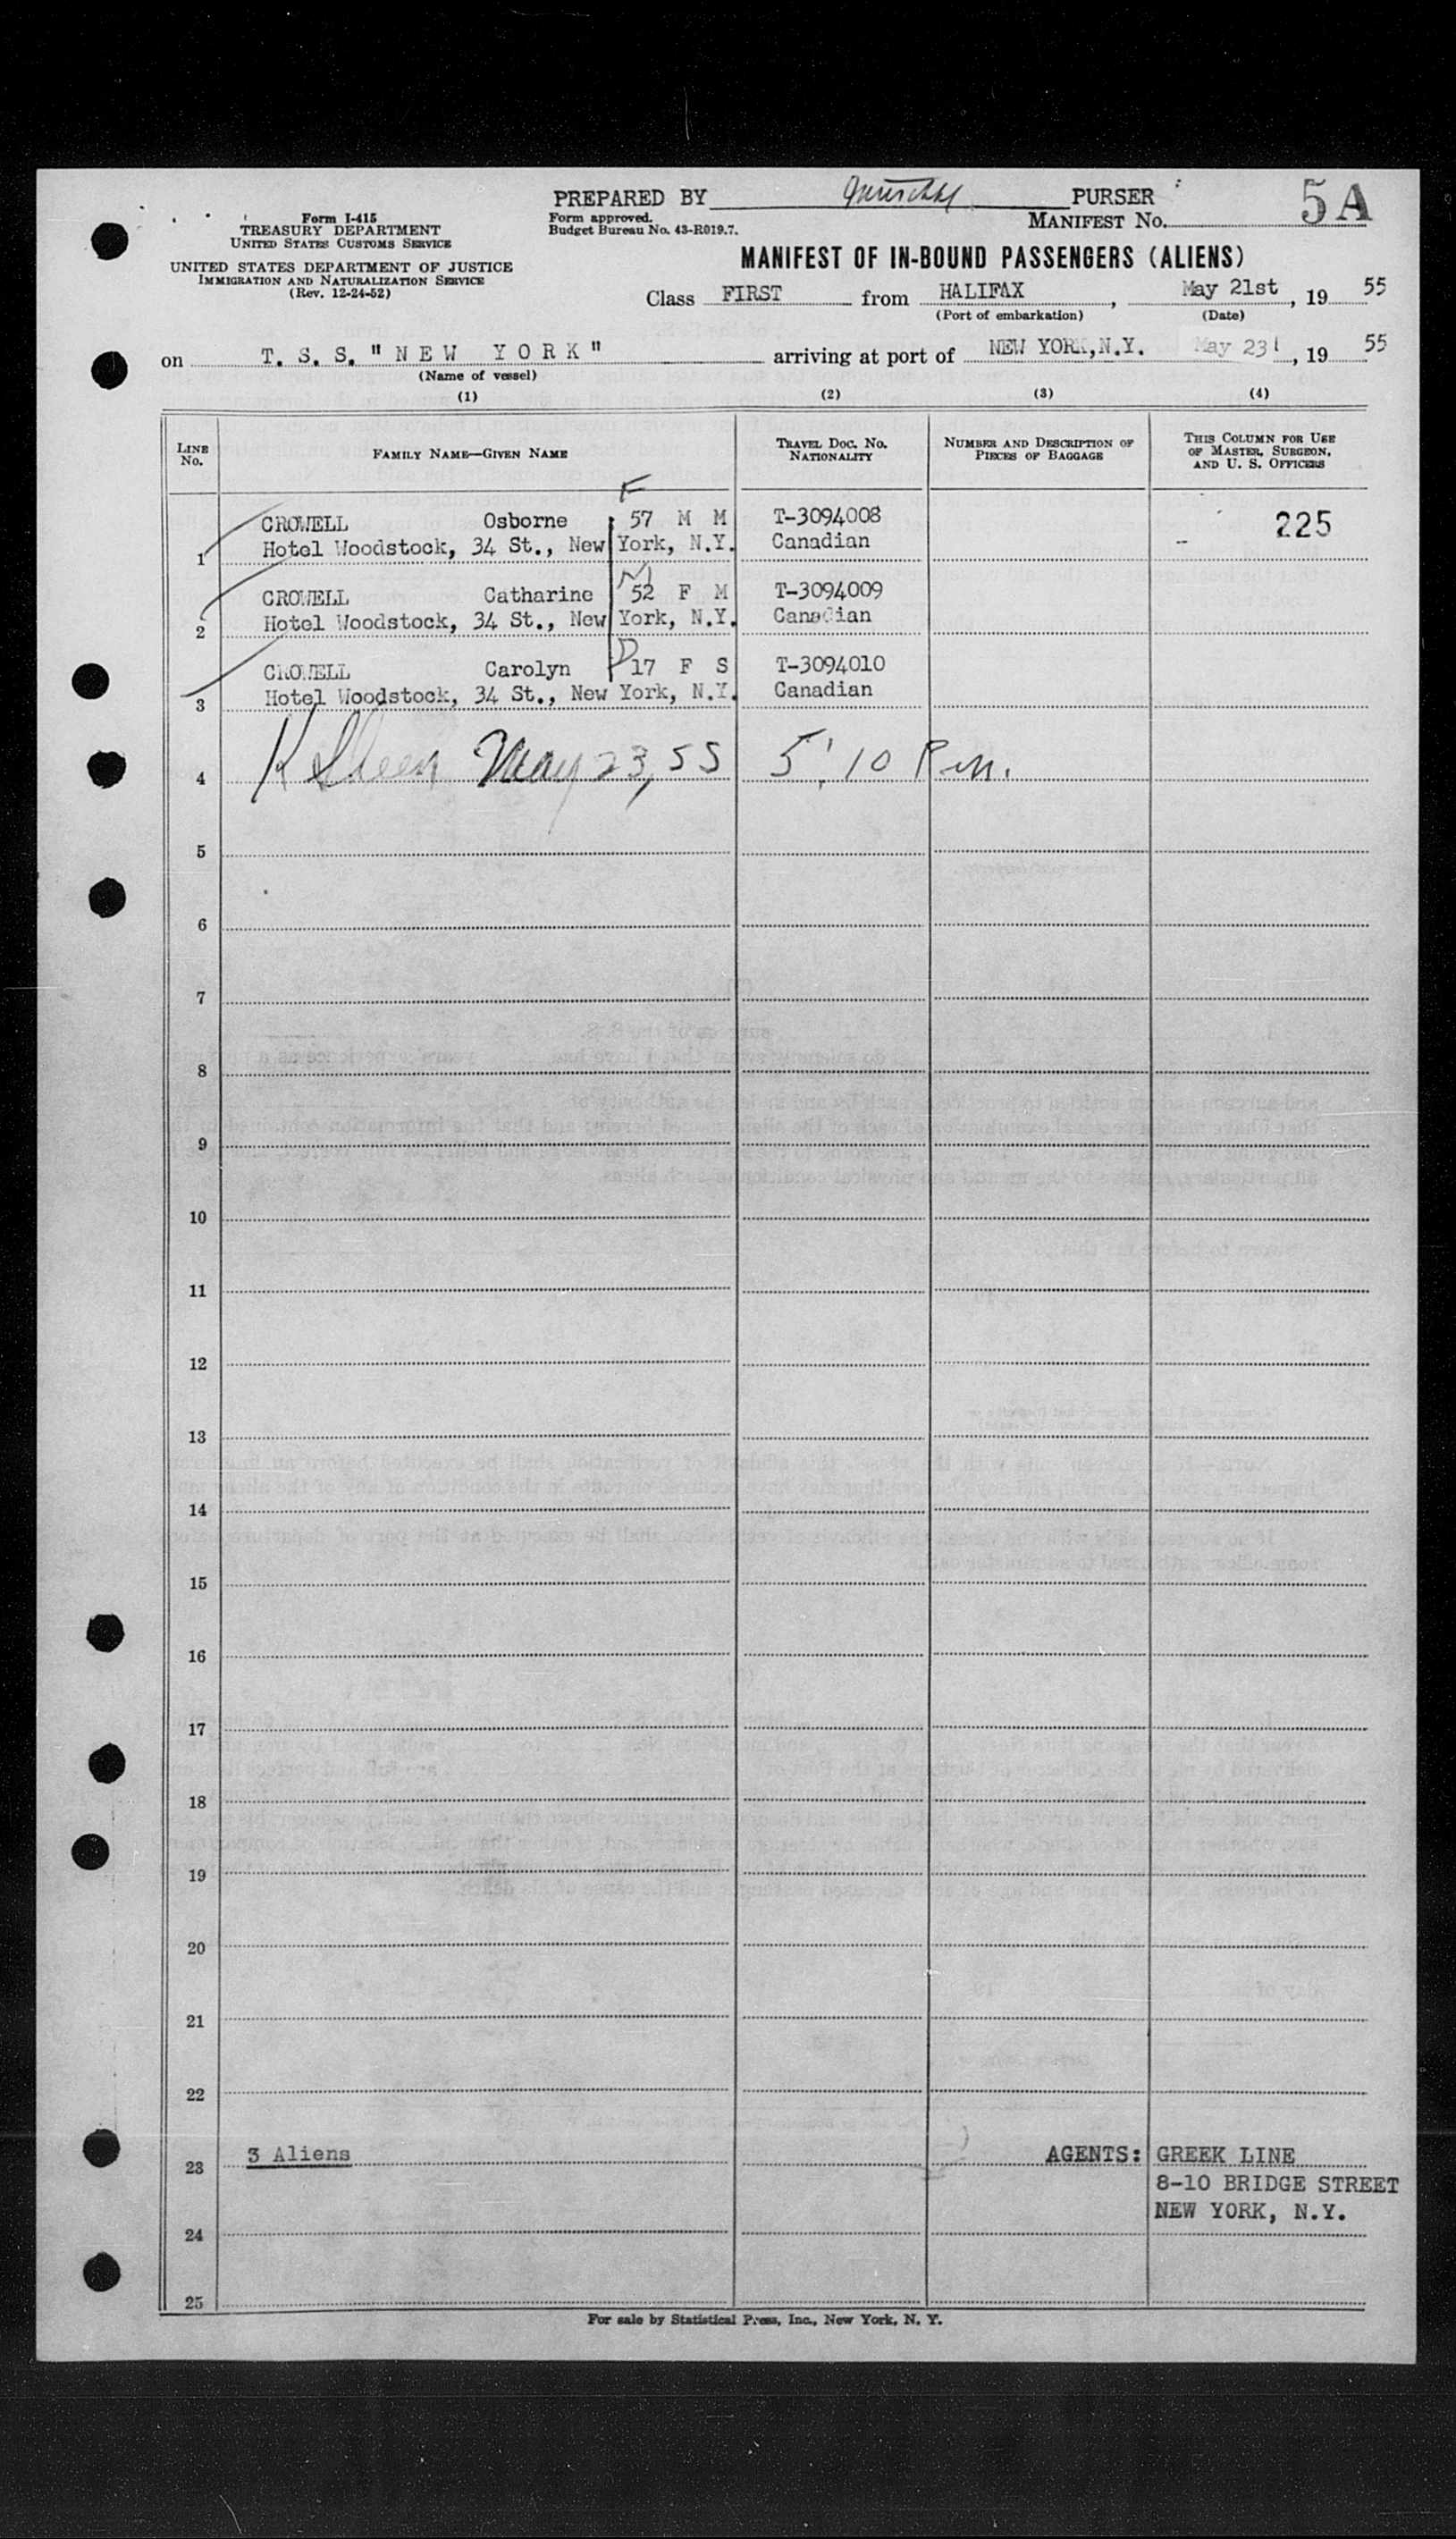 PREPARED BY PURSER 5A
Form I-415
TREASURY DEPARTMENT
UNITED STATES CUSTOMS SERVICE
Form approved.
Budget Bureau No. 43-R019.7.
MANIFEST No.
UNITED STATES DEPARTMENT OF JUSTICE
IMMIGRATION AND NATURALIZATION SERVICE
(Rev. 12-24-52)
MANIFEST OF IN-BOUND PASSENGERS (ALIENS)
Class FIRST from HALIFAX, May 21st, 19 55
(Port of embarkation) (Date)
on T. S. S. "NEW YORK" arriving at port of NEW YORK, N.Y. May 23, 19 55
(Name of vessel)
(1) (2) (3) (4)
LINE No. FAMILY NAME—GIVEN NAME TRAVEL DOC. NO. NATIONALITY NUMBER AND DESCRIPTION OF PIECES OF BAGGAGE THIS COLUMN FOR USE OF MASTER, SURGEON, AND U. S. OFFICERS
F
CROWELL Osborne 57 M M T-3094008 225
1 Hotel Woodstock, 34 St., New York, N.Y. Canadian
M
CROWELL Catharine 52 F M T-3094009
2 Hotel Woodstock, 34 St., New York, N.Y. Canadian
D
CROWELL Carolyn 17 F S T-3094010
3 Hotel Woodstock, 34 St., New York, N.Y. Canadian
4 May 23, 55 5:10 P.m.
5
6
7
8
9
10
11
12
13
14
15
16
17
18
19
20
21
22
23 3 Aliens AGENTS: GREEK LINE
8-10 BRIDGE STREET
NEW YORK, N.Y.
24
25
For sale by Statistical Press, Inc., New York, N. Y.